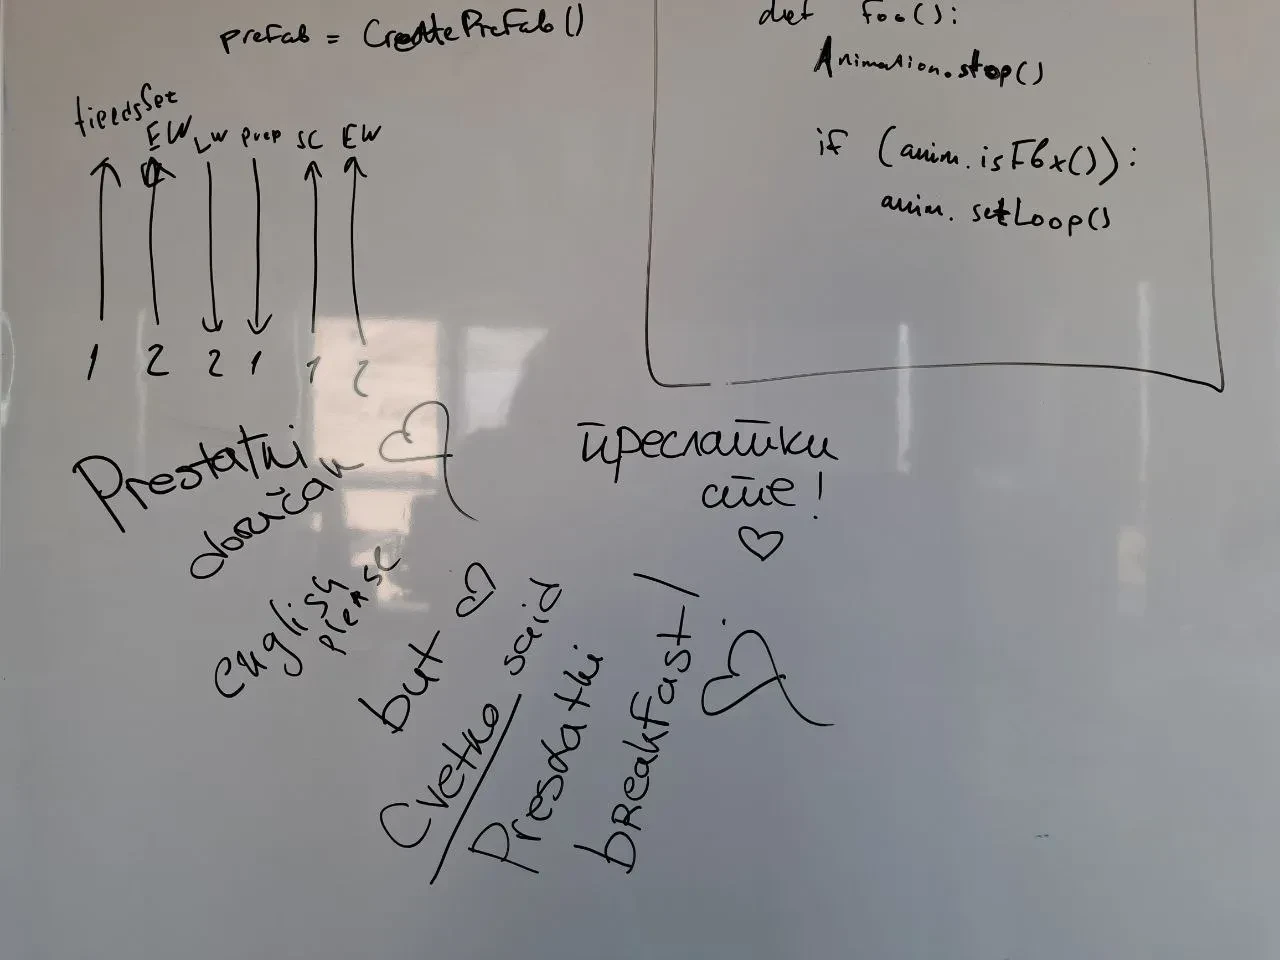 prefab = CreatePrefab()
def foo():
Animation.stop()
if (anim.isFbx()):
anim.setLoop()
fieldsSet EW LW prep SC EW
1 2 2 1 1 2
Prestatni
doručak
english
please
but
Cvetko said
Prestatni
breakfast!
преслатки
сте!